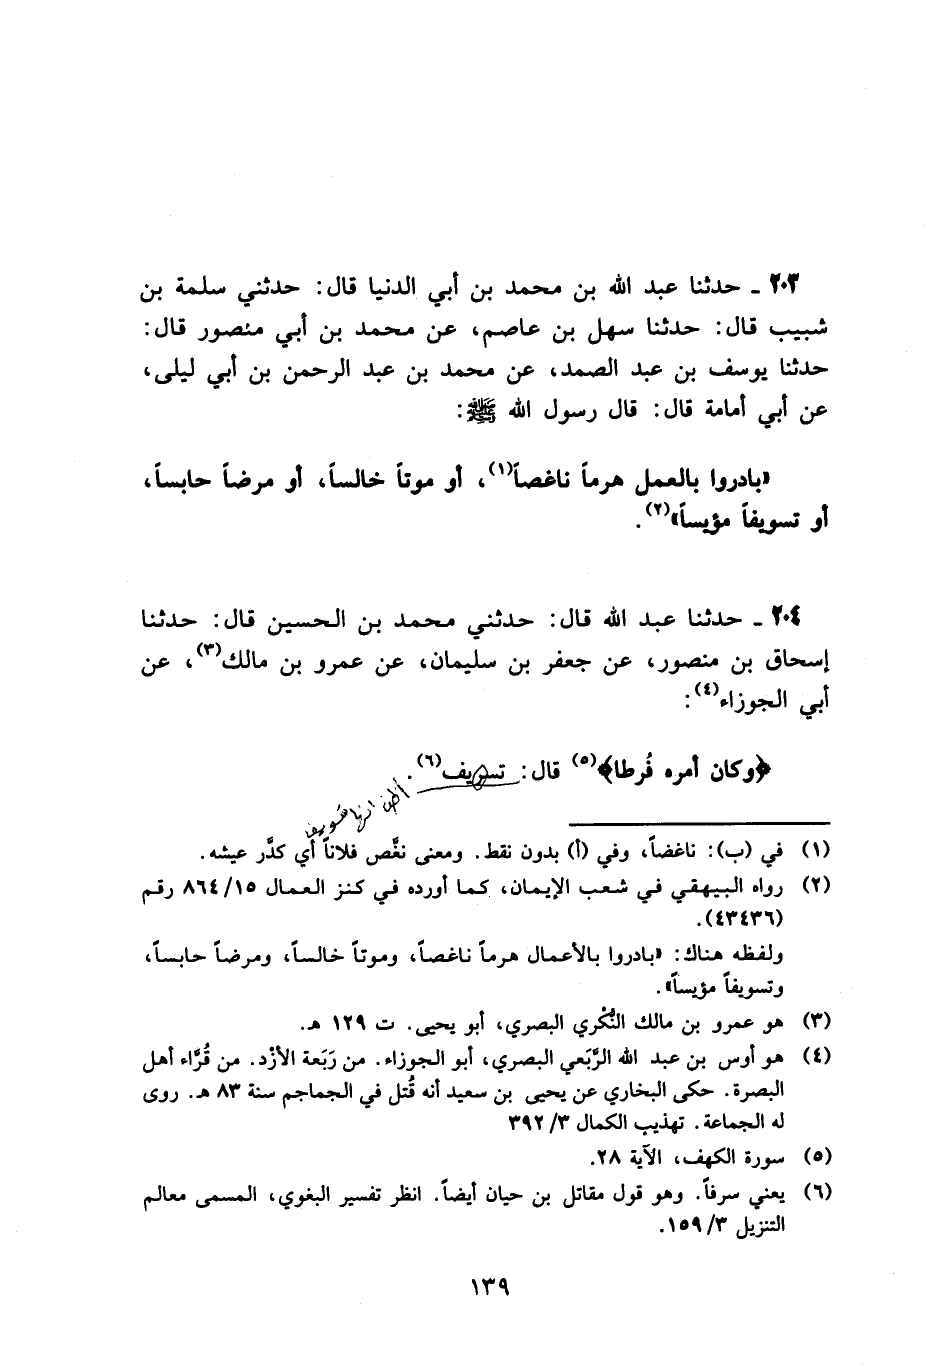 ٢٠٣ ـ حدثنا عبد الله بن محمد بن أبي الدنيا قال: حدثني سلمة بن
شبيب قال: حدثنا سهل بن عاصم، عن محمد بن أبي منصور قال:
حدثنا يوسف بن عبد الصمد، عن محمد بن عبد الرحمن بن أبي ليلى،
عن أبي أمامة قال: قال رسول الله ﷺ:
«بادروا بالعمل هرماً ناغصاً(١)، أو موتاً خالساً، أو مرضاً حابساً،
أو تسويفاً مؤيساً»(٢).
٢٠٤ ـ حدثنا عبد الله قال: حدثني محمد بن الحسين قال: حدثنا
إسحاق بن منصور، عن جعفر بن سليمان، عن عمرو بن مالك(٣)، عن
أبي الجوزاء(٤):
﴿وكان أمره فُرطا﴾(٥) قال: تسريف(٦).
أظن انها تسويف
(١) في (ب): ناغضاً، وفي (أ) بدون نقط. ومعنى نغَّص فلاناً أي كدَّر عيشه.
(٢) رواه البيهقي في شعب الإيمان، كما أورده في كنز العمال ١٥/ ٨٦٤ رقم
(٤٣٤٣٦).
ولفظه هناك: «بادروا بالأعمال هرماً ناغصاً، وموتاً خالساً، ومرضاً حابساً،
وتسويفاً مؤيساً».
(٣) هو عمرو بن مالك النُّكْري البصري، أبو يحيى. ت ١٢٩ هـ.
(٤) هو أوس بن عبد الله الرَّبَعي البصري، أبو الجوزاء. من رَبَعة الأزْد. من قُرَّاء أهل
البصرة. حكى البخاري عن يحيى بن سعيد أنه قُتل في الجماجم سنة ٨٣ هـ. روى
له الجماعة. تهذيب الكمال ٣/ ٣٩٢
(٥) سورة الكهف، الآية ٢٨.
(٦) يعني سرفاً. وهو قول مقاتل بن حيان أيضاً. انظر تفسير البغوي، المسمى معالم
التنزيل ٣/ ١٥٩.
١٣٩